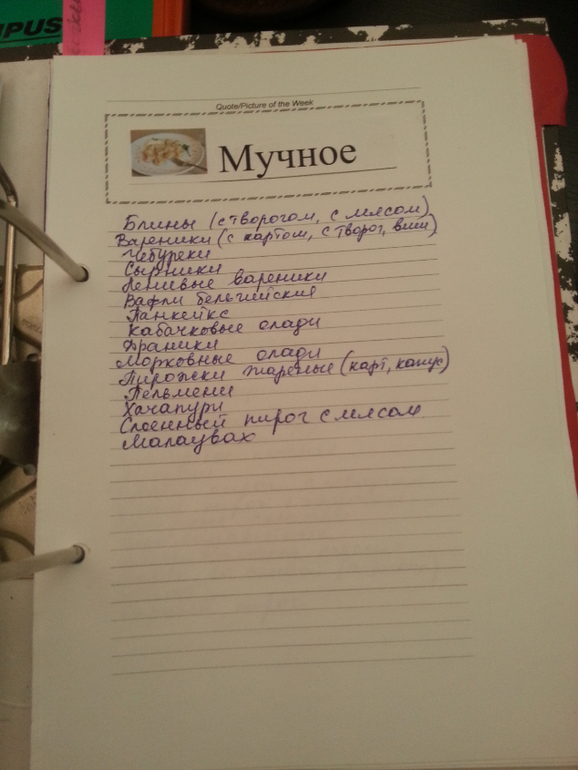 MPUS
Quote/Picture of the Week
Мучное
Блины (с творогом, с мясом)
Вареники (с картош, с творог, виш)
Чебуреки
Сырники
Ленивые вареники
Вафли бельгийские
Панкейкс
Кабачковые олади
Драники
Морковные олади
Пирожски жареные (карт, капус)
Пельмени
Хачапури
Слоенный пирог с мясом
Малаувах